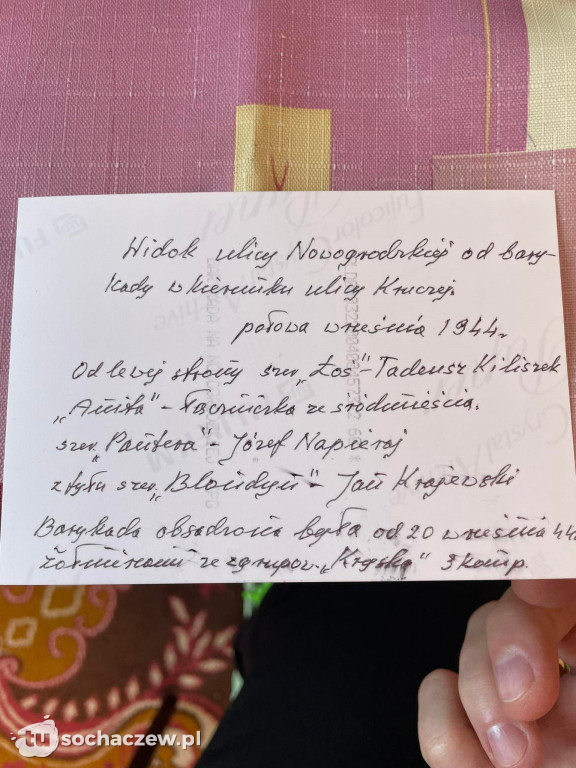 Widok ulicy Nowogrodzkiej od bary-
kady w kierunku ulicy Kruczej.
połowa września 1944r.
Od lewej strony szer. „Łoś” - Tadeusz Kiliszek
„Anita” - Łączniczka ze śródmieścia.
szer. „Pantera” - Józef Napieraj
z tyłu szer. „Blondyn” - Jan Krajewski
Barykada obsadzona była od 20 września 44r.
żołnierzami ze zgrupow. „Kryska” 3 komp.
tu sochaczew.pl